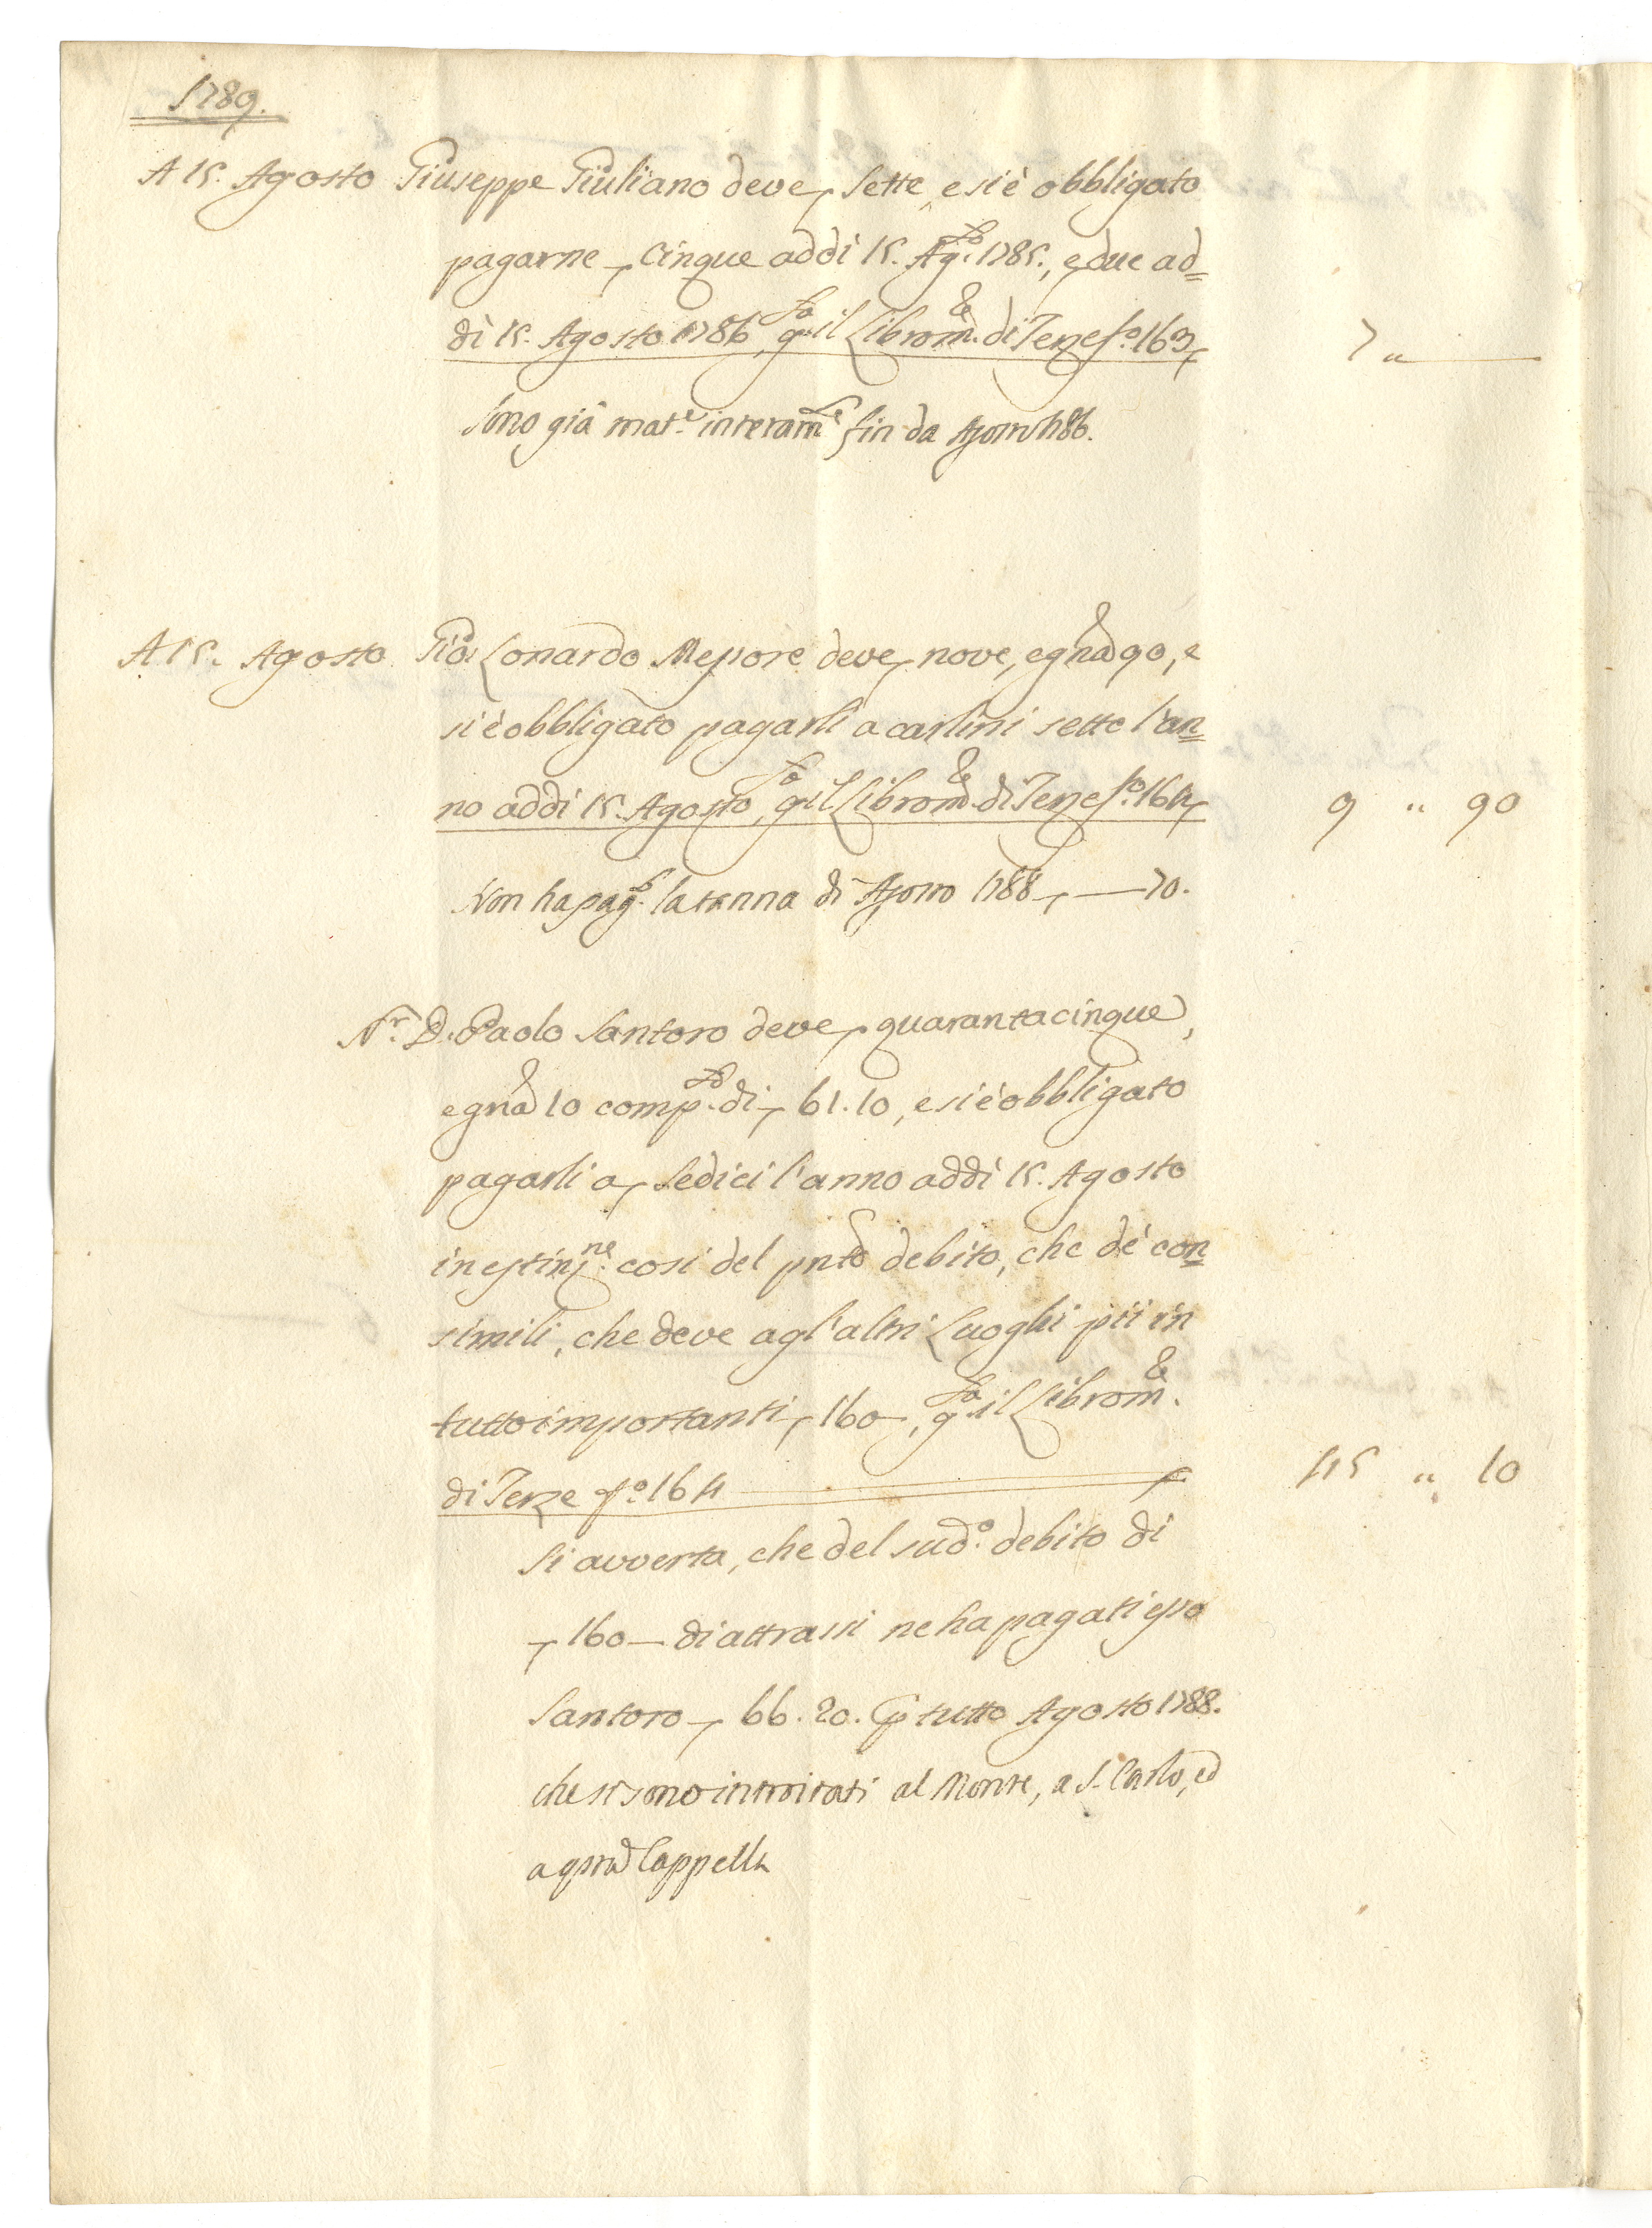 1789.
A 15. Agosto Giuseppe Giuliano deve sette, e si è obbligato
pagarne cinque addì 15. Ag.to 1785., e due ad=
dì 15. Agosto 1786, g.ta il Libro m.e di Terze f.o 163 7 "
sono già mat.e interam.te fin da Agosto 1786.
A 15. Agosto Gio: Lonardo Mepore deve nove, e gna 90, e
si è obbligato pagarli a carlini sette l'an=
no addì 15. Agosto, g.ta il Libro m.e di Terze f.o 164 9 " 90
Non ha pag.to la tanna di Agosto 1788 — 70.
N.r D. Paolo Santoro deve quarantacinque,
e gna 10 comp.to di 61.10, e si è obbligato
pagarli a sedici l'anno addì 15. Agosto
in estinz.ne così del pnto debito, che de' con=
simili, che deve agl'altri Luoghi pii in
tutto importanti 160, g.ta il Libro m.e
di Terze f.o 164 45 " 10
Si avverta, che del sud.o debito di
160 — di attrassi ne ha pagati esso
Santoro 66.20. p tutto Agosto 1788.
che si sono introitati al Monte, a S. Carlo, ed
a qsta Cappella